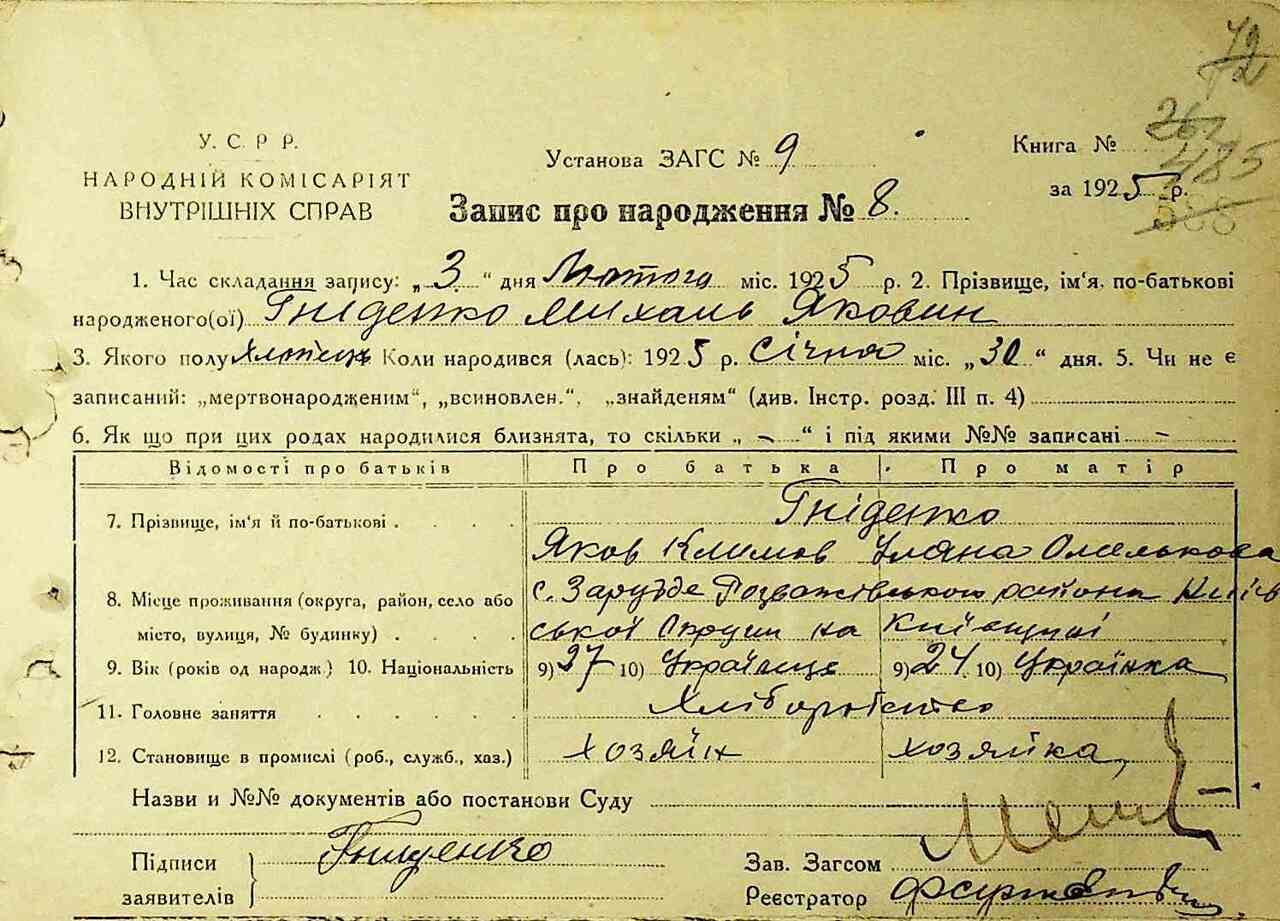 72
263
485
588
У. С. Р. Р.
НАРОДНІЙ КОМІСАРІЯТ
ВНУТРІШНІХ СПРАВ
Установа ЗАГС № 9
Книга №
за 1925 р.
Запис про народження № 8.
1. Час складання запису: „3“ дня Лютого міс. 1925 р. 2. Прізвище, ім'я, по-батькові
народженого(ої) Гніденко Михаль Яковин
3. Якого полу Хлопець Коли народився (лась): 1925 р. Січня міс. „30“ дня. 5. Чи не є
записаний: „мертвонародженим“, „всиновлен.“, „знайденям“ (див. Інстр. розд. III п. 4)
6. Як що при цих родах народилися близнята, то скільки „ - “ і під якими №№ записані -
Відомості про батьків Про батька Про матір
7. Прізвище, ім'я й по-батькові . . . . Гніденко
Яков Климов Уляна Омелькова
8. Місце проживання (округа, район, село або с. Заруддє Розважівського района Київ
місто, вулиця, № будинку) . . . . ської Округи на Київщині
9. Вік (років од народж.) 10. Національність 9) 27 10) Українець 9) 24. 10) Українка
11. Головне заняття . . . . . . Хліборобство
12. Становище в промислі (роб., служб., хаз.) хозяїн хозяйка
Назви и №№ документів або постанови Суду
Підписи
заявителів
Гниденко
Зав. Загсом
Реєстратор